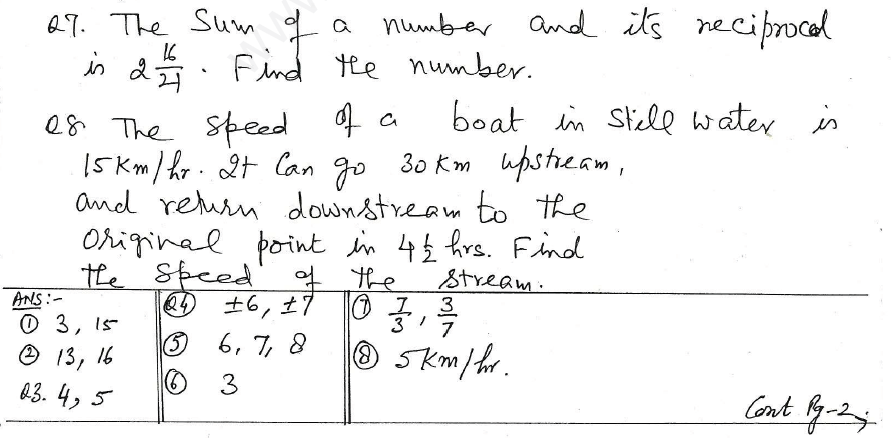 Q7. The Sum of a number and its reciprocal
is 2 16/21 . Find the number.
Q8 The speed of a boat in still water is
15 Km/hr. It Can go 30 Km upstream,
and return downstream to the
Original point in 4 1/2 hrs. Find
the speed of the stream.
ANS:-
① 3, 15
② 13, 16
Q3. 4, 5
Q4) ±6, ±7
⑤ 6, 7, 8
⑥ 3
⑦ 7/3, 3/7
⑧ 5 Km/hr.
Cont Pg-2;